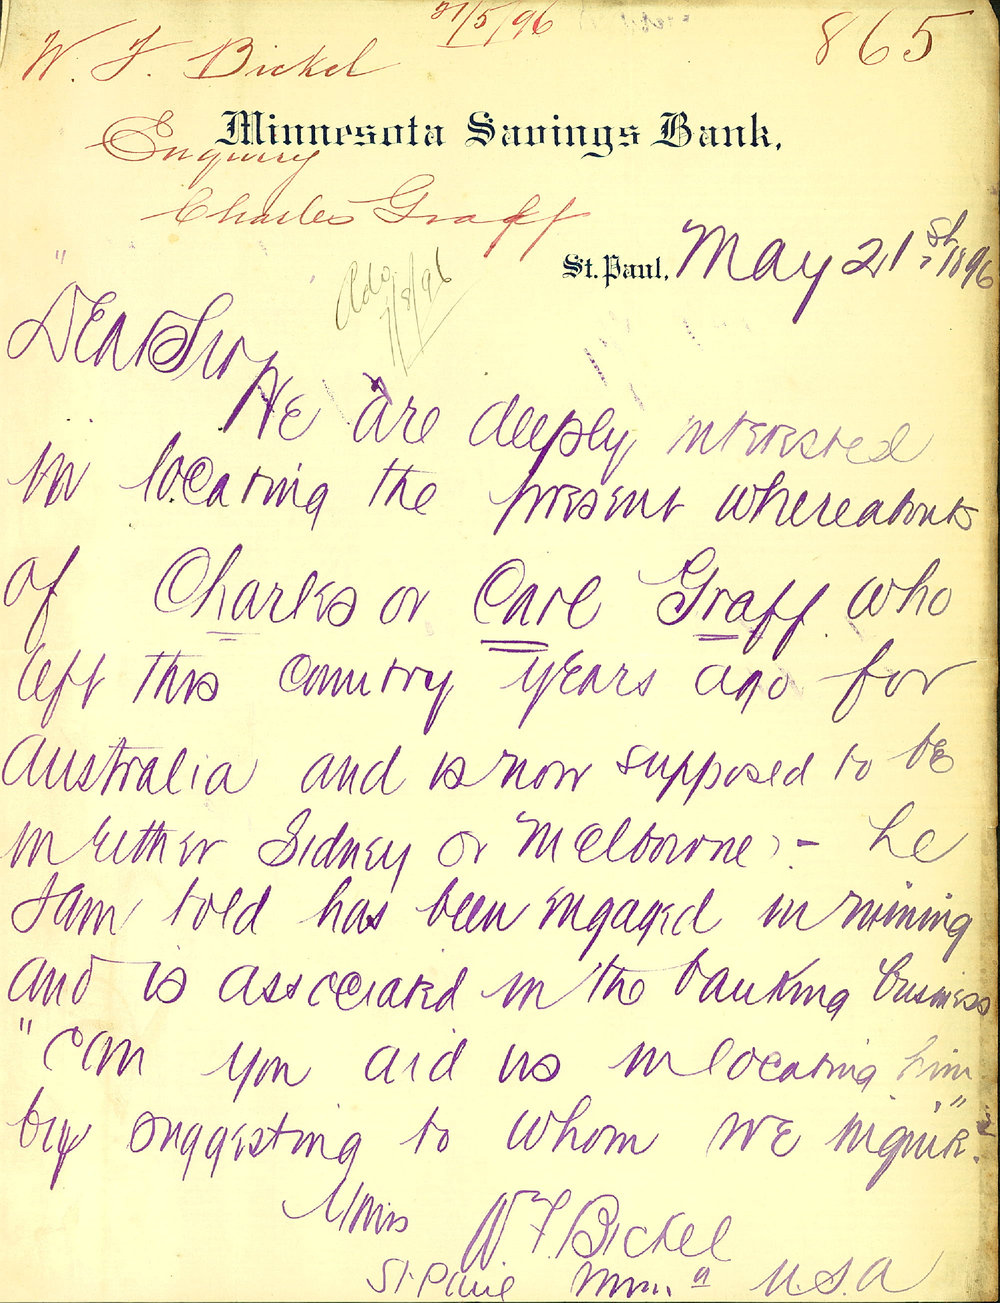 21/5/96
W. F. Bickel
865
Minnesota Savings Bank.
Enquiry
Charles Graff
St. Paul, May 21st, 1896
/8/96
Dear Sir
We are deeply interested
in locating the present whereabouts
of Charles or Carl Graff who
left this country years ago for
Australia and is now supposed to be
in Either Sidney or Melbourne, - he
I am told has been engaged in mining
and is associated in the banking business
"Can you aid us in locating him"
by suggesting to whom we inquire.
Yours W F Bickel
St. Paul Minn. U.S.A